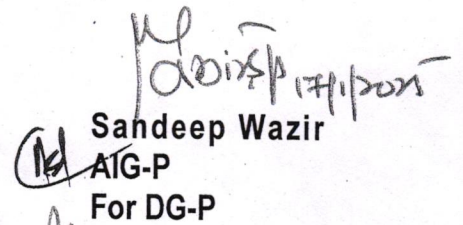 17/1/2025
Sandeep Wazir
AIG-P
For DG-P